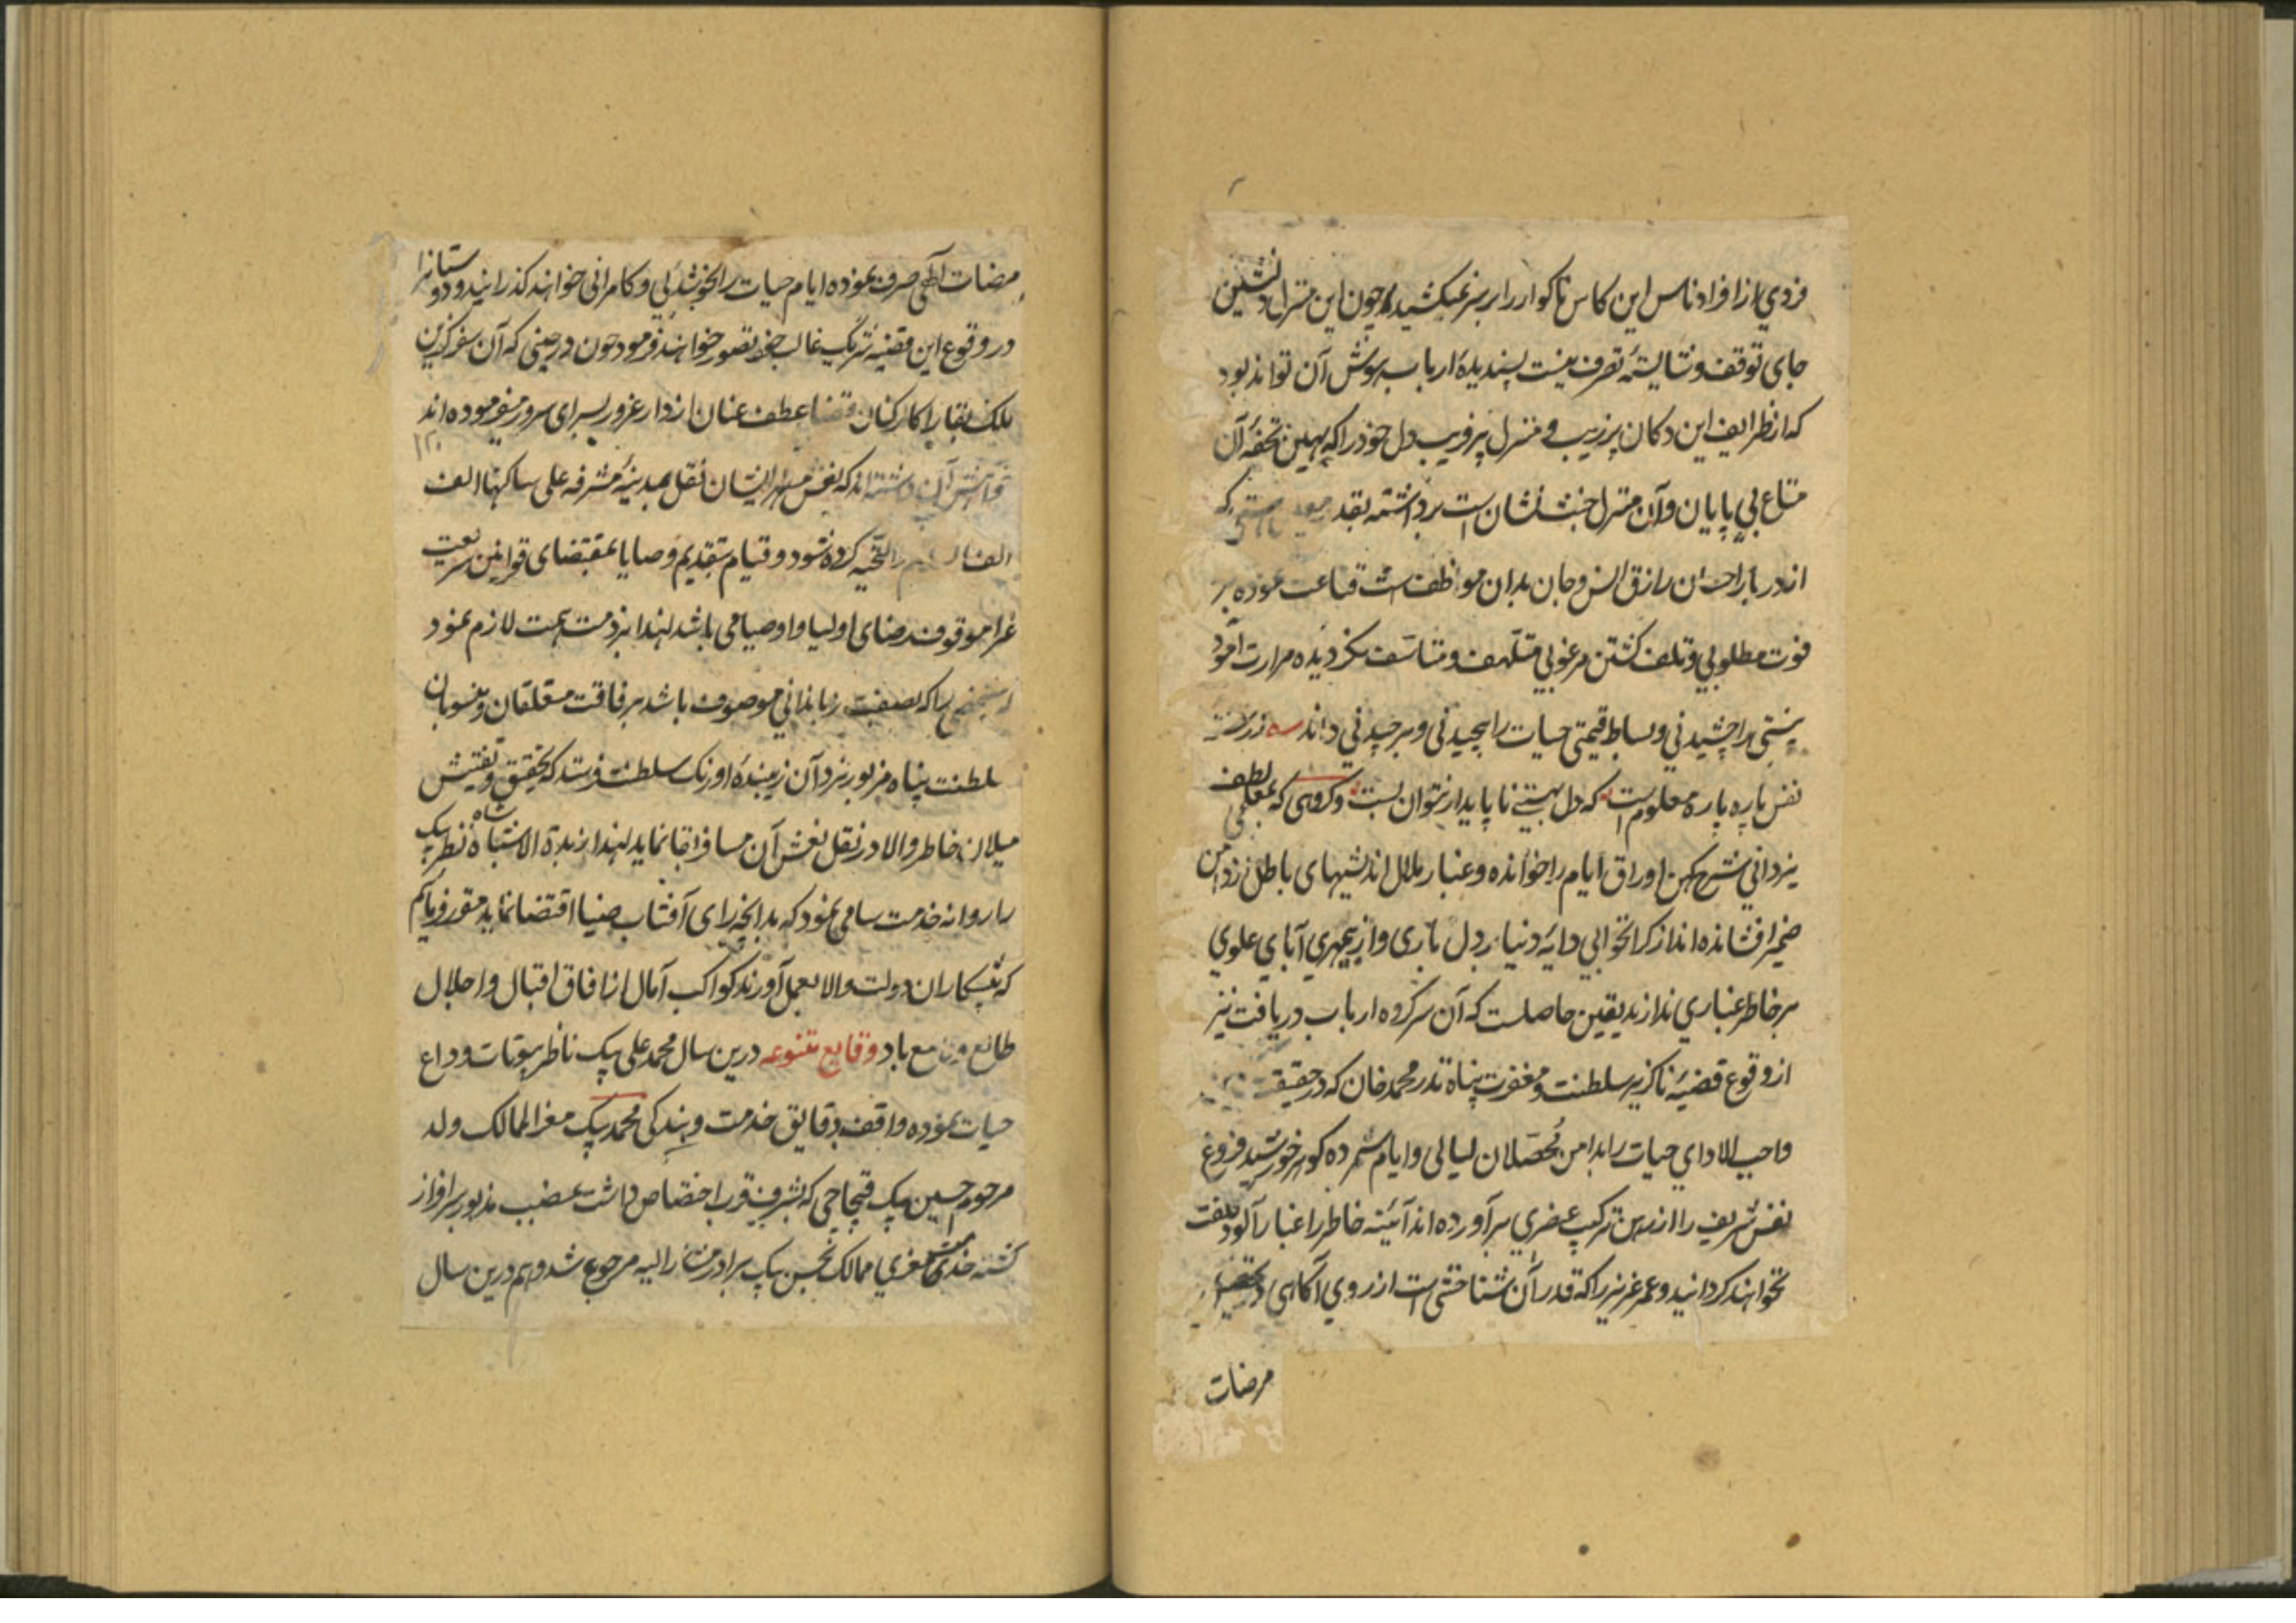 فردي از افراد ناس این کاس ناکوار را بر سر نمیکشید و چون این منزل دلنشین
جای توقف و شایستهٔ تصرف نیست پسندیدهٔ ارباب هوش آن تواند بود
که از ظرایف این دکان پر زیب و منزل پر فریب دل خود را که بهین تحفهٔ آن
متاع بي پایان و آن منزل جنت نشان است برداشته بقدر که
از دربار احسان رازق انس و جان بدان موظف است قناعت نموده بر
فوت مطلوبي و تلف کشتن مرغوبي متلهف و متاسف نکردیده مرارت آمود
هستی را چشیدني و بساط قیمتی حیات را پیچیدنی و برچیدني داند
نفس پاره پاره معلوم است که دل بهستي ناپایدار نتوان بست و کروهی که بمعلمی لطف
یزداني شرح کهن اوراق ایام را خوانده و غبار ملال اندیشهای باطل از دامن
ضمیر افشانده اند از کرانخوابي دایهٔ دنیا بر دل باری و از بیمهري آباي علوي
بر خاطر غباري ندارند یقین حاصلست که آن سر کروه ارباب دریافت نیز
از وقوع قضیهٔ ناکزیر سلطنت و مغفرت پناه ندر محمد خان که در حقیقت
واجب الاداي حیات را بدامن محصلان لیالی و ایام شمرده کوهر خورشید فروغ
نفس شریف را از رهن ترکیب عنصري برآورده اند آئینه خاطر را غبار آلود کلفت
نخواهند کردانید و عمر عزیز را که قدر آن شناختنی است از روي آکاهی در
مرضات
مرضات الهی صرف نموده ایام حیات را بخوشدلي و کامرانی خواهند کذرانید و دوستانرا
در وقوع این قضیه شریک غالب خود تصور خواهند فرمود چون در حینی که آن سفر کزین
ملک بقا با کارکنان قضا عطف عنان از دار غرور بسرای سرور میفرموده اند
خواهش آن داشته اند که نعش مطهر ایشان نقل بمدینهٔ مشرفه علی ساکنها الف
الف التحیه کرده شود و قیام بتقدیم وصایا بمقتضای قوانین شریعت
غرا موقوف رضای اولیا و اوصیا می باشد لهذا بر ذمت همت لازم نمود
که شخصی را که بصفت زباندانی موصوف باشد برفاقت متعلقان و منسوبان
سلطنت پناه مزبور نزد آن زیبندهٔ اورنک سلطنت فرستد که تحقیق و تفتیش
میلان خاطر والا در نقل نعش آن مسافر بقا نماید لهذا زبدة الاشباه شاه نظر بیک
را روانه خدمت سامی نمود که بدانچه رای آفتاب ضیا اقتضا نماید مقرر فرمایم
که پیشکاران دولت والا بعمل آورند کواکب آمال از افاق اقبال و اجلال
طالع و لامع باد وقایع متنوعه درین سال محمد علی بیک ناظر بیوتات وداع
حیات نموده واقف دقایق خدمت و بندکی محمد بیک معیر الممالک ولد
مرحوم حسین بیک قیچاچی که بشرف قرب اختصاص داشت بمنصب مذبور سرافراز
کشته خدمت معیري ممالک بحسن بیک برادر مشار الیه مرجوع شد و هم درین سال